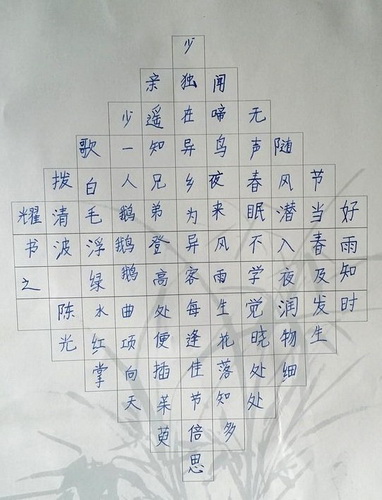 少
亲独闻
少遥在啼无
歌一知异鸟声随
拨白人兄乡夜春风节
耀清毛鹅弟为来眠潜当好
书波浮鹅登异风不入春雨
之绿鹅高客雨学夜及知
陈水曲处每生觉润发时
光红项便逢花晓物生
掌向插佳落处细
天茱节知处
萸倍多
思